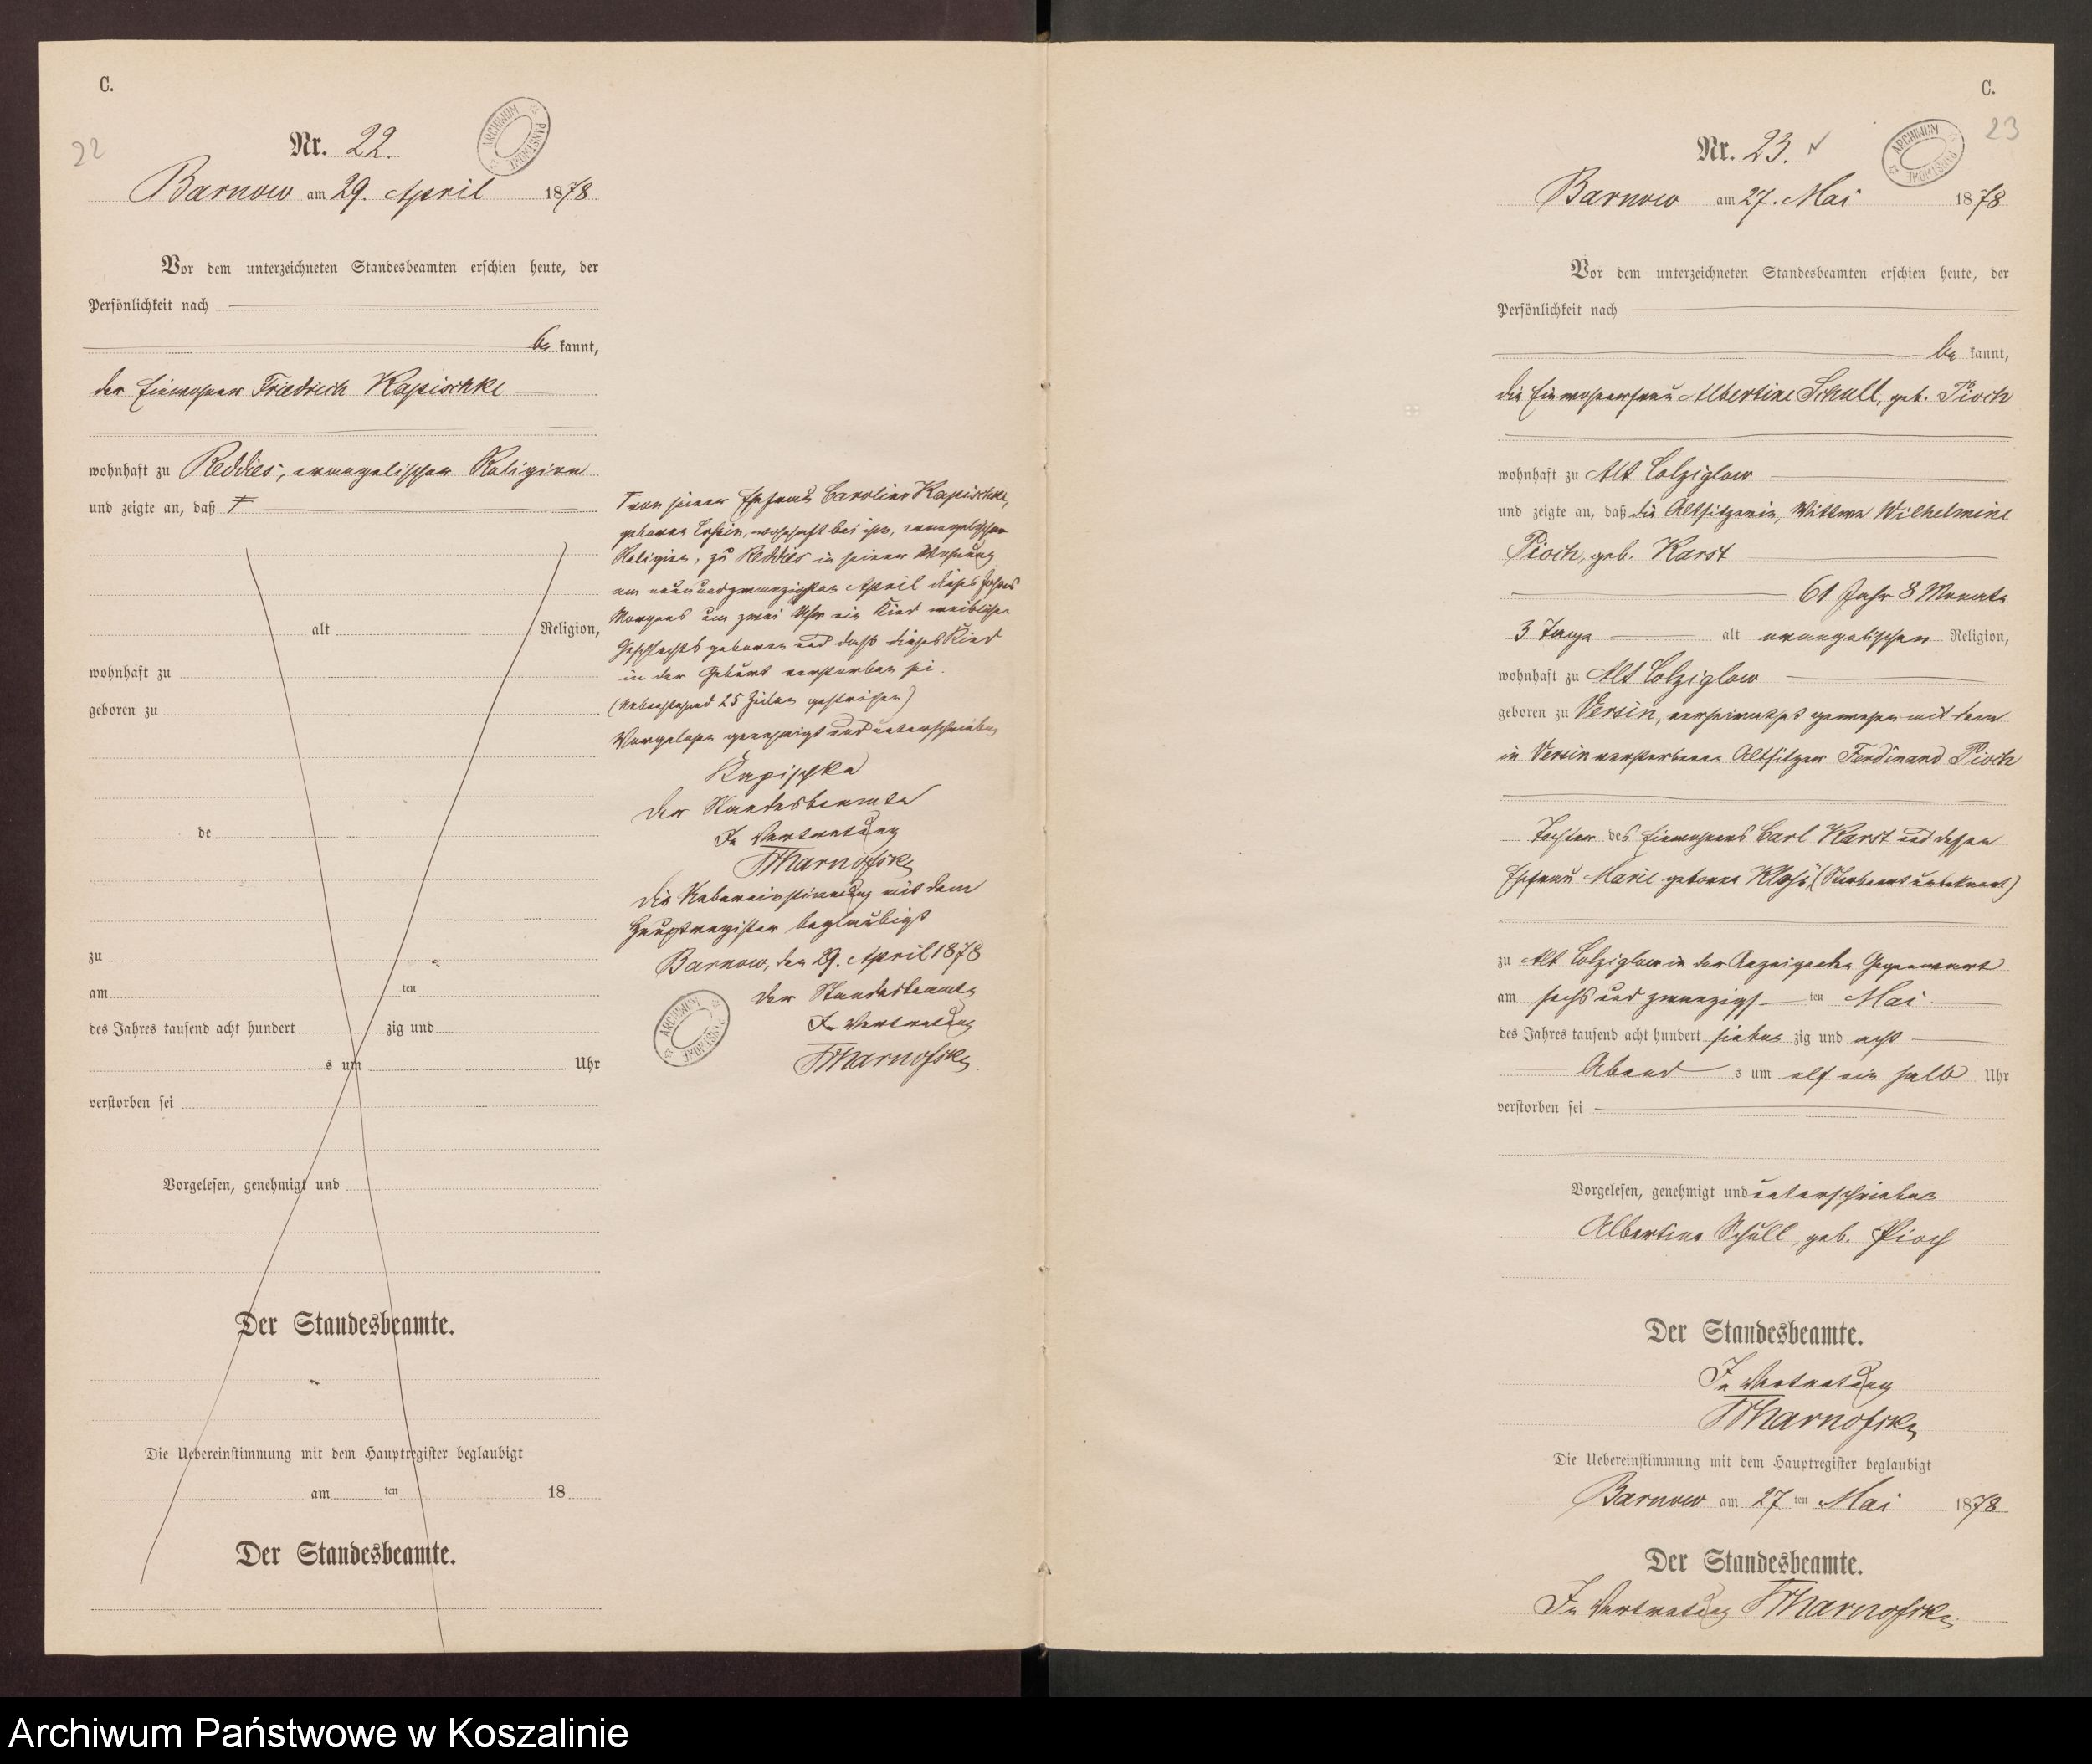 C.
22
Nr. 22.
ARCHIWUM PAŃSTWOWE
Barnow am 29. April 1878
Vor dem unterzeichneten Standesbeamten erschien heute, der
Persönlichkeit nach
be kannt,
der Einwohner Friedrich Kapischke
wohnhaft zu Reddies, evangelischer Religion
und zeigte an, daß
alt Religion,
wohnhaft zu
geboren zu
de
zu
am ten
des Jahres tausend acht hundert zig und
s um Uhr
verstorben sei
Vorgelesen, genehmigt und
Der Standesbeamte.
Die Uebereinstimmung mit dem Hauptregister beglaubigt
am ten 18
Der Standesbeamte.
von seiner Ehefrau Caroline Kapischke,
geborne wohnhaft bei ihm, evangelischer
Religion, zu Reddies in seiner Wohnung
am neunundzwanzigsten April dieses Jahres
Morgens um zwei Uhr ein Kind weiblichen
Geschlechts geboren und daß dieses Kind
in der Geburt verstorben sei.
(Nebenstehend 25 Zeilen gestrichen)
Vorgelesen genehmigt und unterschrieben
Kapischke
Der Standesbeamte
In Vertretung
Die Uebereinstimmung mit dem
Hauptregister beglaubigt
Barnow, den 29. April 1878
Der Standesbeamte
In Vertretung
ARCHIWUM PAŃSTWOWE
C.
23
Nr. 23.
ARCHIWUM PAŃSTWOWE
Barnow am 27. Mai 1878
Vor dem unterzeichneten Standesbeamten erschien heute, der
Persönlichkeit nach
be kannt,
die Einwohnerfrau Albertine Schull, geb. Pioch
wohnhaft zu Alt Colziglow
und zeigte an, daß die Altsitzerin, Wittwe Wilhelmine
Pioch, geb. Karst
61 Jahr 8 Monate
3 Tage alt evangelischen Religion,
wohnhaft zu Alt Colziglow
geboren zu Versin, verheirathet gewesen mit dem
in Versin verstorbenen Altsitzer Ferdinand Pioch
Tochter des Einwohners Carl Karst und dessen
Ehefrau Marie geborne (Sterbeort unbekannt)
zu Alt Colziglow in der Anzeigenden Gegenwart
am sechs und zwanzigs ten Mai
des Jahres tausend acht hundert sieben zig und acht
Abend s um elf ein halb Uhr
verstorben sei
Vorgelesen, genehmigt und unterschrieben
Albertine Schull, geb. Pioch
Der Standesbeamte.
In Vertretung
Die Uebereinstimmung mit dem Hauptregister beglaubigt
Barnow am 27 ten Mai 1878
Der Standesbeamte.
In Vertretung
Archiwum Państwowe w Koszalinie